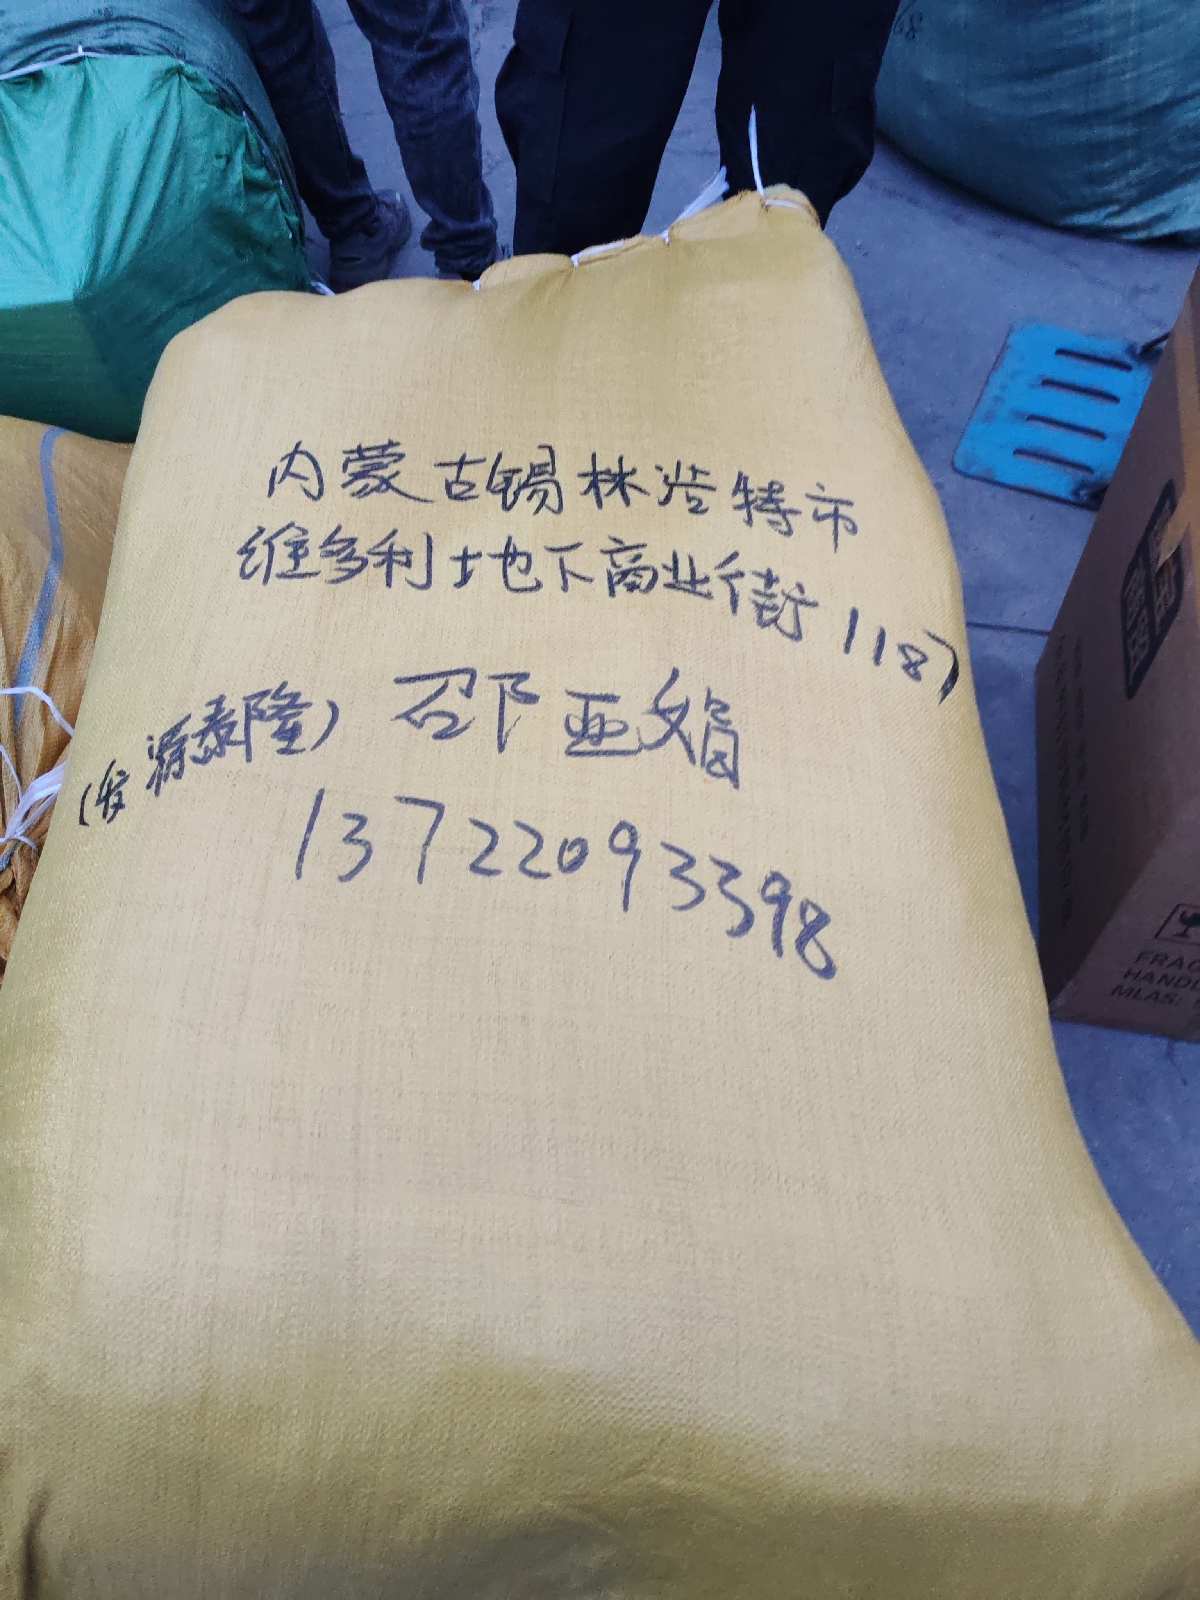 内蒙古锡林浩特市
维多利士地下商业街118号
(发源泰隆) 邵亚娟
13722093398
FRAG
HANDL
MLAS: